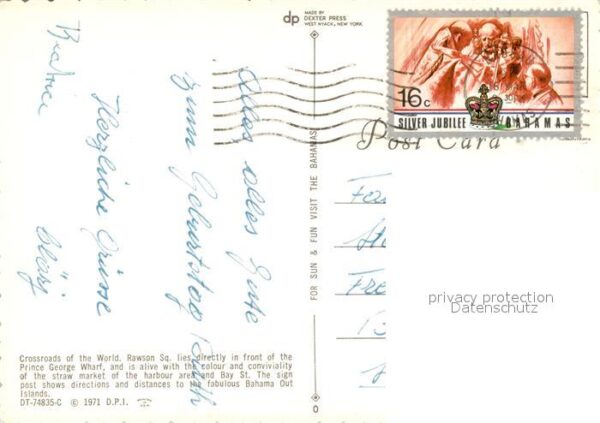 dp
MADE BY
DEXTER PRESS
WEST NYACK, NEW YORK
16c
SILVER JUBILEE BAHAMAS
Post Card
Alles alles Gute
zum Geburtstag
Herzliche Grüsse
Beatrice
FOR SUN & FUN VISIT THE BAHAMAS
Fre
privacy protection
Datenschutz
Crossroads of the World. Rawson Sq. lies directly in front of the
Prince George Wharf, and is alive with the colour and conviviality
of the straw market of the harbour area and Bay St. The sign
post shows directions and distances to the fabulous Bahama Out
Islands.
DT-74835-C © 1971 D.P.I.
0